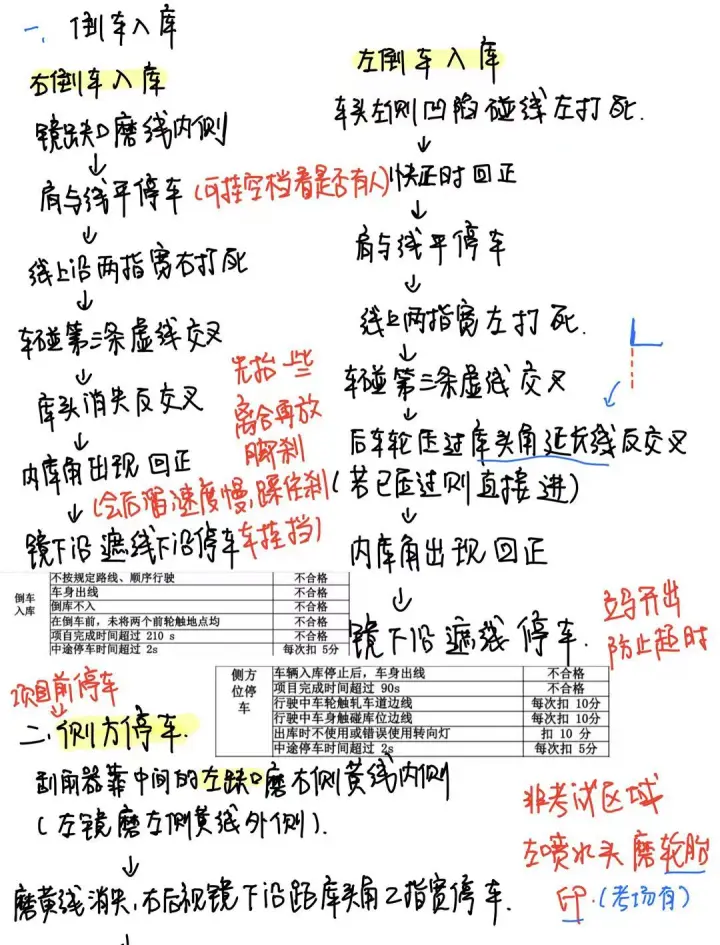 一、倒车入库
右倒车入库
镜缺口磨线内侧
肩与线平停车(可挂空档看是否有人)
线上沿两指宽右打死
车碰第三条虚线交叉
库头消失反交叉
内库角出现回正
先抬一些
离合再放
脚刹
(会后溜,速度慢,踩住刹
车挂挡)
镜下沿遮线下沿停车
左倒车入库
车头左侧凹陷碰线左打死.
快正时回正
肩与线平停车
线上两指宽左打死.
车碰第三条虚线交叉
后车轮压过库头角延长线反交叉
(若已压过则直接进)
内库角出现回正
镜下沿遮线停车.
立马开出
防止超时
倒车入库
不按规定路线、顺序行驶 不合格
车身出线 不合格
倒库不入 不合格
在倒车前,未将两个前轮触地点均 不合格
项目完成时间超过 210 s 不合格
中途停车时间超过 2s 每次扣 5分
侧方位停车
车辆入库停止后,车身出线 不合格
项目完成时间超过 90s 不合格
行驶中车轮触轧车道边线 每次扣 10分
行驶中车身触碰库位边线 每次扣 10分
出库时不使用或错误使用转向灯 扣 10 分
中途停车时间超过 2s 每次扣 5分
项目前停车
二、侧方停车.
刮雨器靠中间的左缺口磨右侧黄线内侧
(左镜磨左侧黄线外侧).
磨黄线消失,右后视镜下沿距库头角2指宽停车.
非考试区域
左喷水头磨轮胎
印.(考场有)